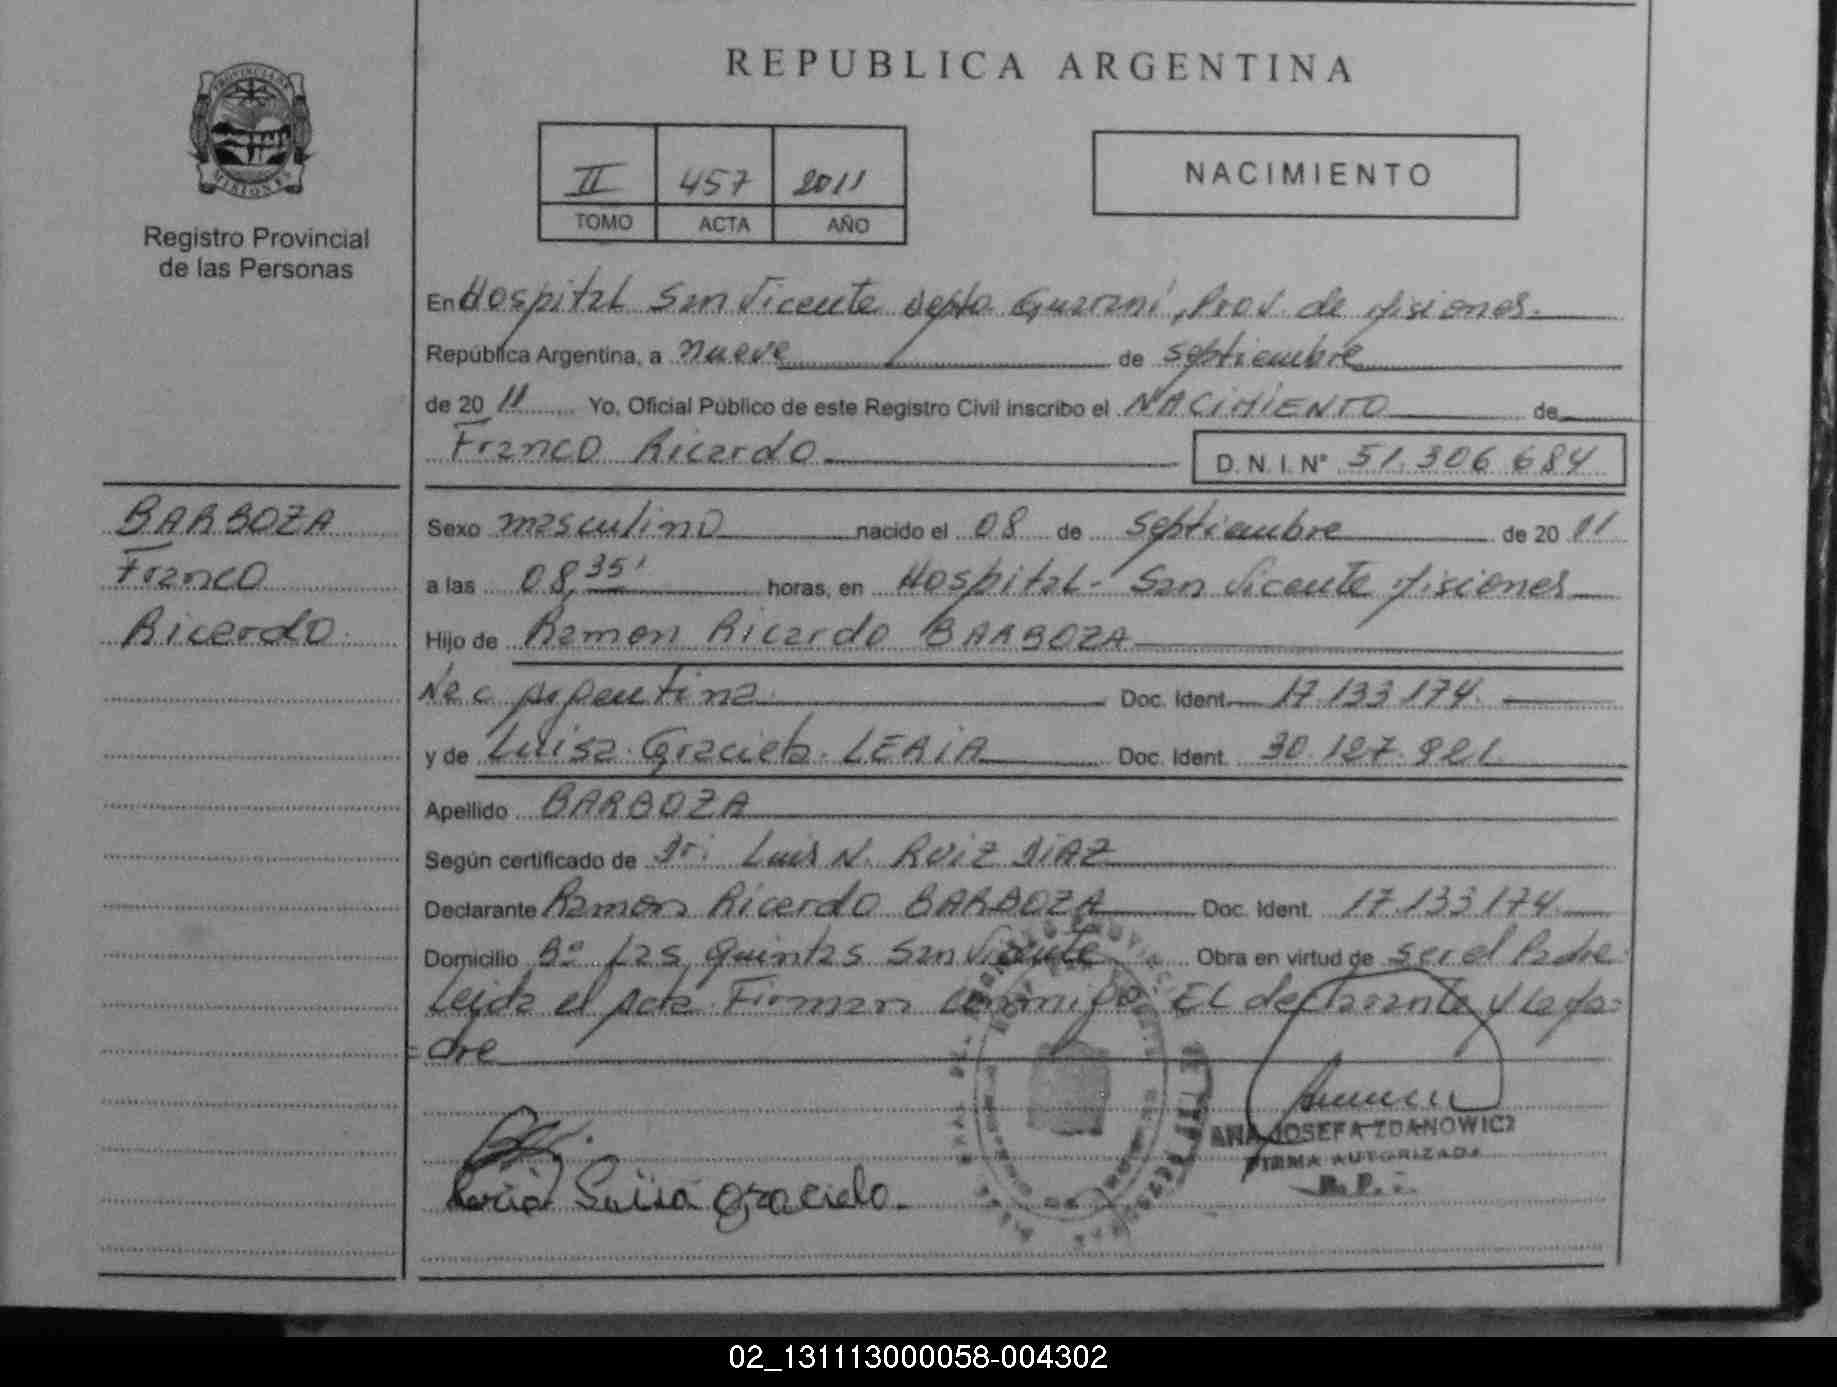 REPUBLICA ARGENTINA
PROVINCIA DE
MISIONES
Registro Provincial
de las Personas
II 457 2011
TOMO ACTA AÑO
NACIMIENTO
En Hospital San Vicente Depto Guaraní, Prov. de Misiones.
República Argentina, a nueve de septiembre
de 20 11 Yo, Oficial Público de este Registro Civil inscribo el NACIMIENTO de
Franco Ricardo D. N. I. N° 51.306.684
BARBOZA
Franco
Ricardo
Sexo masculino nacido el 08 de septiembre de 20 11
a las 08,35' horas, en Hospital - San Vicente Misiones
Hijo de Ramon Ricardo BARBOZA
Nac Argentina Doc. Ident. 17.133.174.
y de Luisa Graciela LERIA Doc. Ident. 30.127.921
Apellido BARBOZA
Según certificado de Dr. Luis N. RUIZ DIAZ
Declarante Ramon Ricardo BARBOZA Doc. Ident. 17.133.174
Domicilio B° Las Quintas San Vicente Obra en virtud de ser el Padre
Leida el Acta Firman conmigo EL declarante y la Ma=
=dre
ANA JOSEFA ZDANOWICZ
FIRMA AUTORIZADA
Luisa Graciela.
02_131113000058-004302